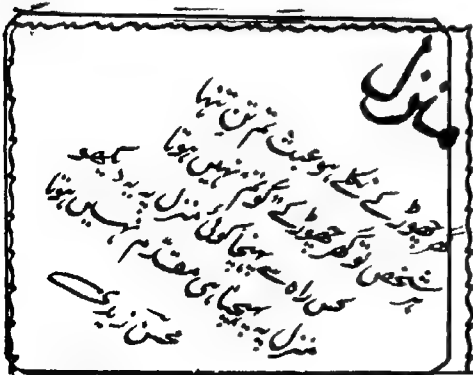 منزل
گھر چھوڑ کے نکلے ہو عبث تم تنِ تنہا
ہر شخص تو گھر چھوڑ کے گوتم نہیں ہوتا
کس راہ سے پہنچا کوئی منزل پہ یہ دیکھو
منزل پہ پہنچنا ہی مقدّم نہیں ہوتا
محسن زیدی